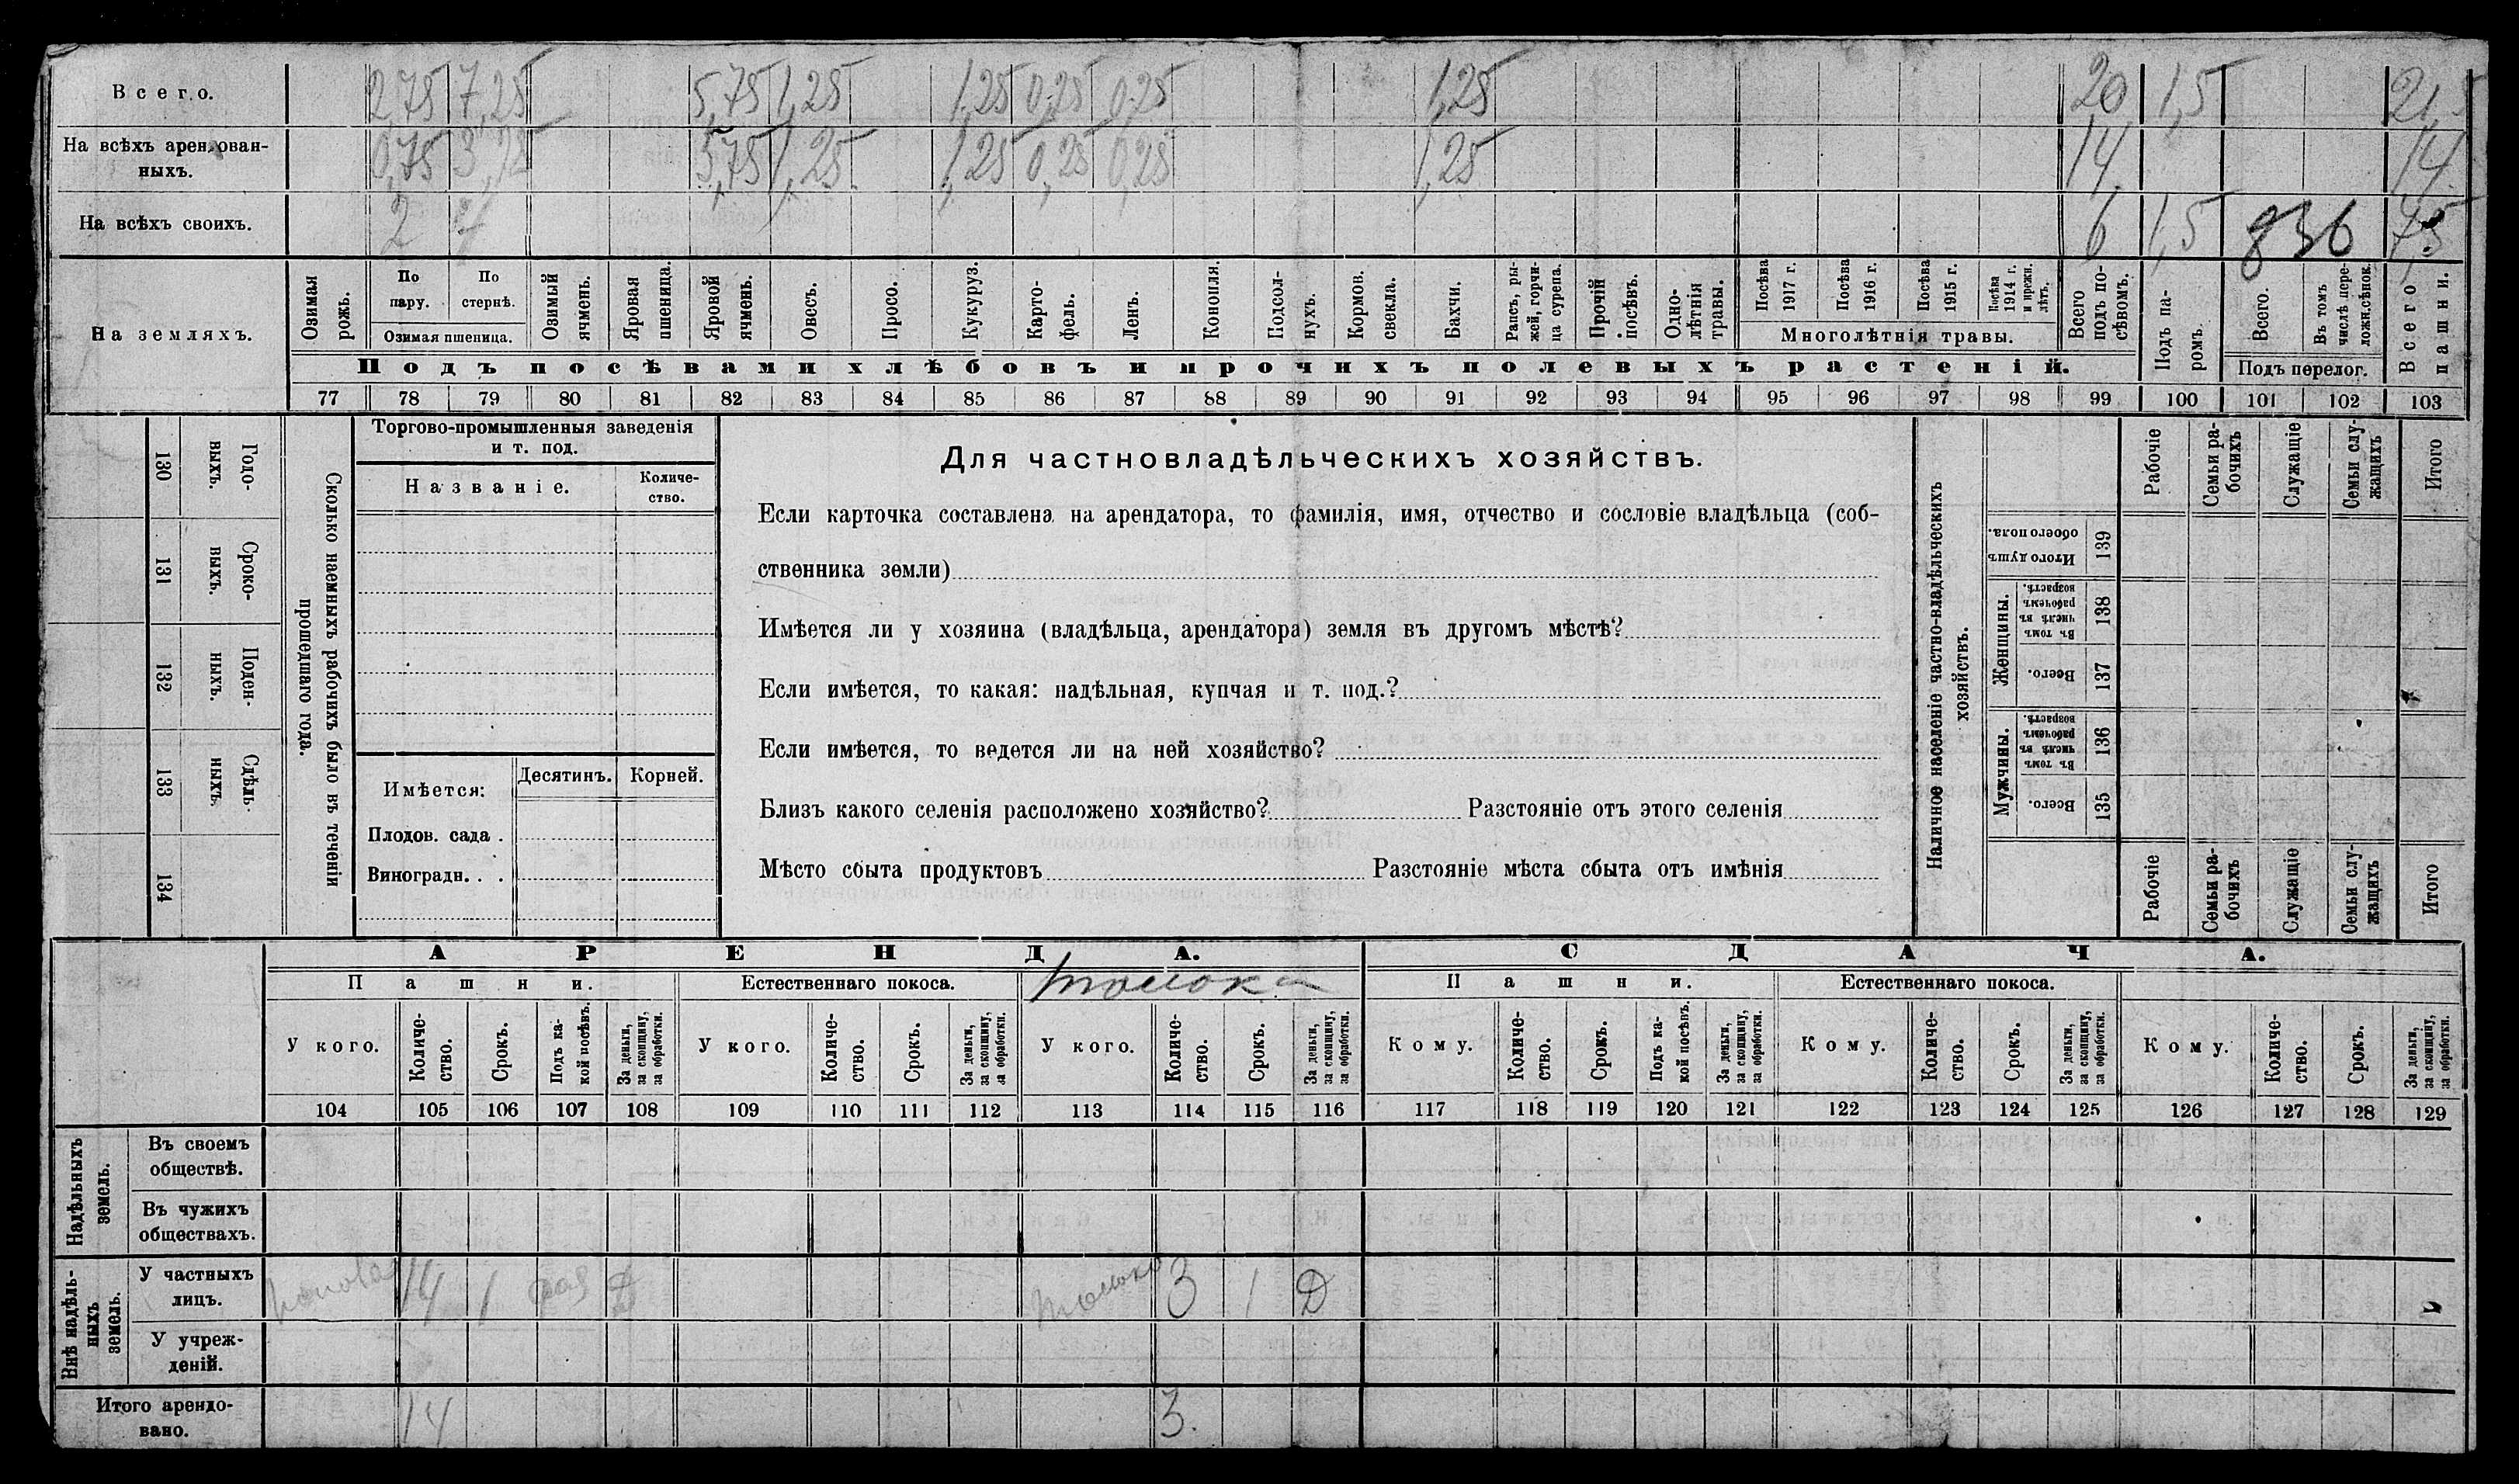 Всего. 2,75 7,25 5,75 1,25 1,25 0,25 0,25 1,25 20 1,5 21,5
На всѣхъ арендован-
ныхъ. 0,75 3,25 5,75 1,25 1,25 0,25 0,25 1,25 14 14
На всѣхъ своихъ. 2 6 1,5 836 7,5
На земляхъ.
Озимая рожь.
По пару.
По стернѣ.
Озимая пшеница.
Озимый ячмень.
Яровая пшеница.
Яровой ячмень.
Овесъ.
Просо.
Кукуруз.
Карто-
фель.
Ленъ.
Конопля.
Подсол-
нухъ.
Кормов. свекла.
Бахчи.
Рапсъ, ры-
жей, горчи-
ца сурепа.
Прочій посѣвъ.
Одно-
лѣтнія
травы.
Посѣва 1917 г.
Посѣва 1916 г.
Посѣва 1915 г.
Посѣва 1914 г. и прежн. лѣтъ.
Многолѣтнія травы.
Всего подъ по-
сѣвомъ.
Подъ па-
ромъ.
Всего.
Въ томъ числѣ пере-
ложн. сѣнок.
Подъ перелог.
Всего пашни.
Подъ посѣвами хлѣбовъ и прочихъ полевыхъ растеній.
77 78 79 80 81 82 83 84 85 86 87 88 89 90 91 92 93 94 95 96 97 98 99 100 101 102 103
130 Годо-
выхъ.
131 Сроко-
выхъ.
132 Поден-
ныхъ.
133 Сдѣль-
ныхъ.
134
Сколько наемныхъ рабочихъ было въ теченіи
прошедшаго года.
Торгово-промышленныя заведенія
и т. под.
Названіе.
Количе-
ство.
Имѣется:
Десятинъ.
Корней.
Плодов. сада .
Виноградн. . .
Для частновладѣльческихъ хозяйствъ.
Если карточка составлена на арендатора, то фамилія, имя, отчество и сословіе владѣльца (соб-
ственника земли)
Имѣется ли у хозяина (владѣльца, арендатора) земля въ другомъ мѣстѣ?
Если имѣется, то какая: надѣльная, купчая и т. под.?
Если имѣется, то ведется ли на ней хозяйство?
Близъ какого селенія расположено хозяйство? Разстояніе отъ этого селенія
Мѣсто сбыта продуктовъ Разстояніе мѣста сбыта отъ имѣнія
Наличное населеніе частно-владѣльческихъ
хозяйствъ.
Рабочіе
Семьи ра-
бочихъ
Служащіе
Семьи слу-
жащихъ
Итого
Итого душъ обоего пола. 139
Женщины.
Въ томъ числѣ въ рабочемъ возрастѣ. 138
Всего. 137
Мужчины.
Въ томъ числѣ въ рабочемъ возрастѣ. 136
Всего. 135
Рабочіе
Семьи ра-
бочихъ
Служащіе
Семьи слу-
жащихъ
Итого
АРЕНДА.
СДАЧА.
Пашни.
Естественнаго покоса.
толока
Пашни.
Естественнаго покоса.
У кого.
Количе-
ство.
Срокъ.
Подъ ка-
кой посѣвъ.
За деньги, за скопщину, за обработки.
У кого.
Количе-
ство.
Срокъ.
За деньги, за скопщину, за обработки.
У кого.
Количе-
ство.
Срокъ.
За деньги, за скопщину, за обработки.
Кому.
Количе-
ство.
Срокъ.
Подъ ка-
кой посѣвъ.
За деньги, за скопщину, за обработки.
Кому.
Количе-
ство.
Срокъ.
За деньги, за скопщину, за обработки.
Кому.
Количе-
ство.
Срокъ.
За деньги, за скопщину, за обработки.
104 105 106 107 108 109 110 111 112 113 114 115 116 117 118 119 120 121 122 123 124 125 126 127 128 129
Надѣльныхъ
земель.
Въ своемъ
обществѣ.
Въ чужихъ
обществахъ.
Внѣ надѣль-
ныхъ
земель.
У частныхъ
лицъ. 14 1 Д 3 1 Д
У учреж-
деній.
Итого арендо-
вано. 14 3.